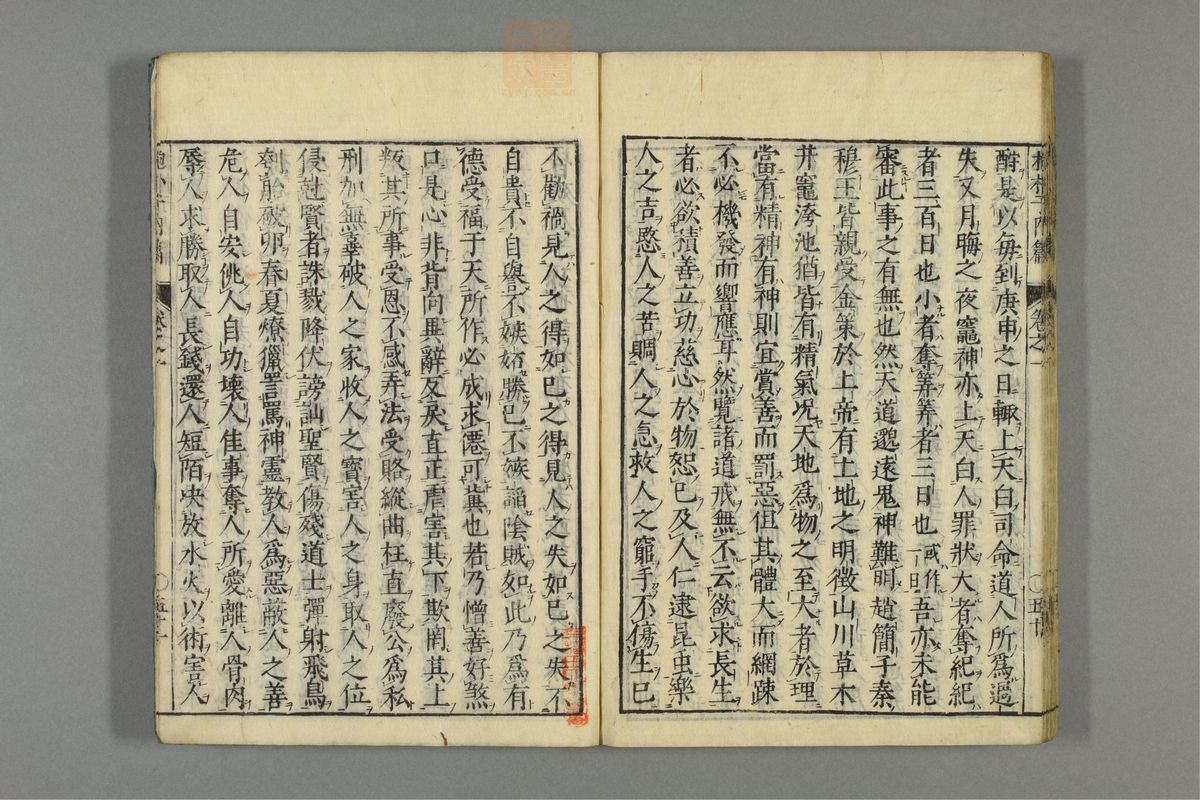 酷是以毎到庚申之日輙上天白司命道人所為過
失又月晦之夜竈神亦上天白人罪狀大者奪紀紀
者三百日也小者奪筭筭者三日也或作一日吾亦未能
審此事之有無也然天道邈遠鬼神難明趙簡子秦
穆王皆親受金策於上帝有土地之明徵山川草木
井竈洿池猶皆有精氣况天地為物之至大者於理
當有精神有神則宜賞善而罰惡但其體大而網踈
不必機發而響應耳然覽諸道戒無不云欲求長生
者必欲積善立功慈心於物恕已及人仁逮昆虫樂
人之吉愍人之苦賙人之急救人之窮手不傷生已
不勸禍見人之得如已之得見人之失如已之失不
自貴不自譽不嫉妬勝已不嫉謟陰賊如此乃為有
德受福于天所作必成求僊可兾也若乃憎善好煞
口是心非背向異辭反戾直正虐害其下欺罔其上
叛其所事受恩不感弄法受賂縱曲枉直廢公為私
刑加無辜破人之家收人之寶害人之身取人之位
侵尅賢者誅戮降伏謗訕聖賢傷殘道士彈射飛鳥
刳胎破卵春夏燎獵罵詈神靈教人為惡蔽人之善
危人自安佻人自功壊人佳事奪人所愛離人骨肉
辱人求勝取人長錢還人短陌决放水火以術害人